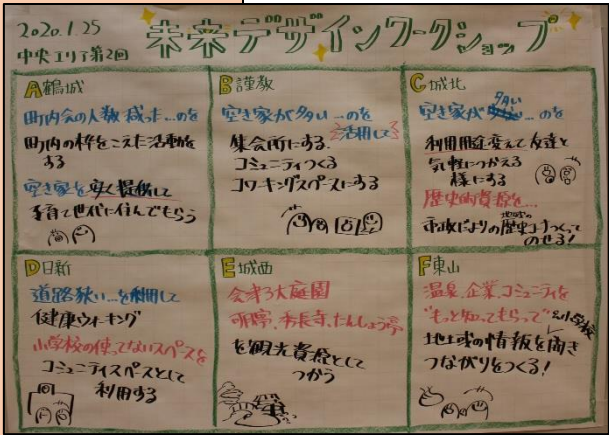 2020.1.25
中央エリア第2回
未来デザインワークショップ
A鶴城
町内会の人数減った…のを
町内の枠をこえた活動を
する
空き家を安く提供して
子育て世代に住んでもらう
B謹教
空き家が多い…のを
活用して
集会所にする
コミュニティつくる
コワーキングスペースにする
C城北
空き家が多い…のを
利用用途変えて友達と
気軽につかえる
様にする
歴史的資源を…
市政だよりの地域の歴史コーナーつくって
のせる!
D日新
道路狭い…を利用して
健康ウォーキング
小学校の使ってないスペースを
コミュニティスペースとして
利用する
E城西
会津3大庭園
を観光資源として
つかう
F東山
温泉、企業、コミュニティを
"もっと知ってもらって"
小学校
地域の情報を聞き
つながりをつくる!